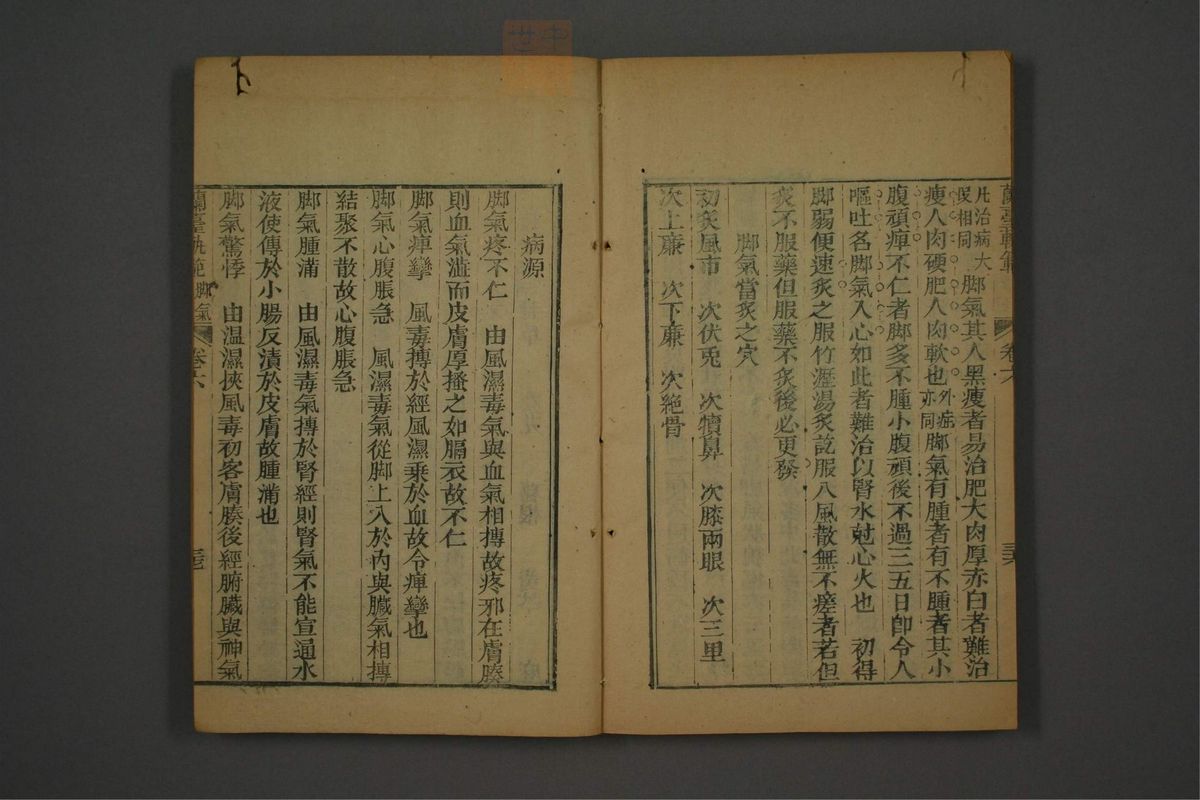 蘭臺軌範 卷六 三六
凡治病大段相同脚氣其人黑瘦者易治肥大肉厚赤白者難治
瘦人肉硬肥人肉軟也外症亦同脚氣有腫者有不腫者其小
腹頑痺不仁者脚多不腫小腹頑後不過三五日卽令人
嘔吐名脚氣入心如此者難治以腎水尅心火也 初得
脚弱便速炙之服竹瀝湯炙訖服八風散無不瘥者若但
炙不服藥但服藥不炙後必更發
脚氣當炙之穴
初炙風市 次伏兎 次犢鼻 次膝兩眼 次三里
次上廉 次下廉 次絶骨
病源
脚氣疼不仁 由風濕毒氣與血氣相摶故疼邪在膚腠
則血氣澁而皮膚厚搔之如隔衣故不仁
脚氣痺攣 風毒摶於經風濕乗於血故令痺攣也
脚氣心腹脹急 風濕毒氣從脚上入於內與臟氣相摶
結聚不散故心腹脹急
脚氣腫滿 由風濕毒氣摶於腎經則腎氣不能宣通水
液使傳於小腸反漬於皮膚故腫滿也
脚氣驚悸 由温濕挾風毒初客膚腠後經腑臟與神氣
蘭臺軌範 脚氣 卷六